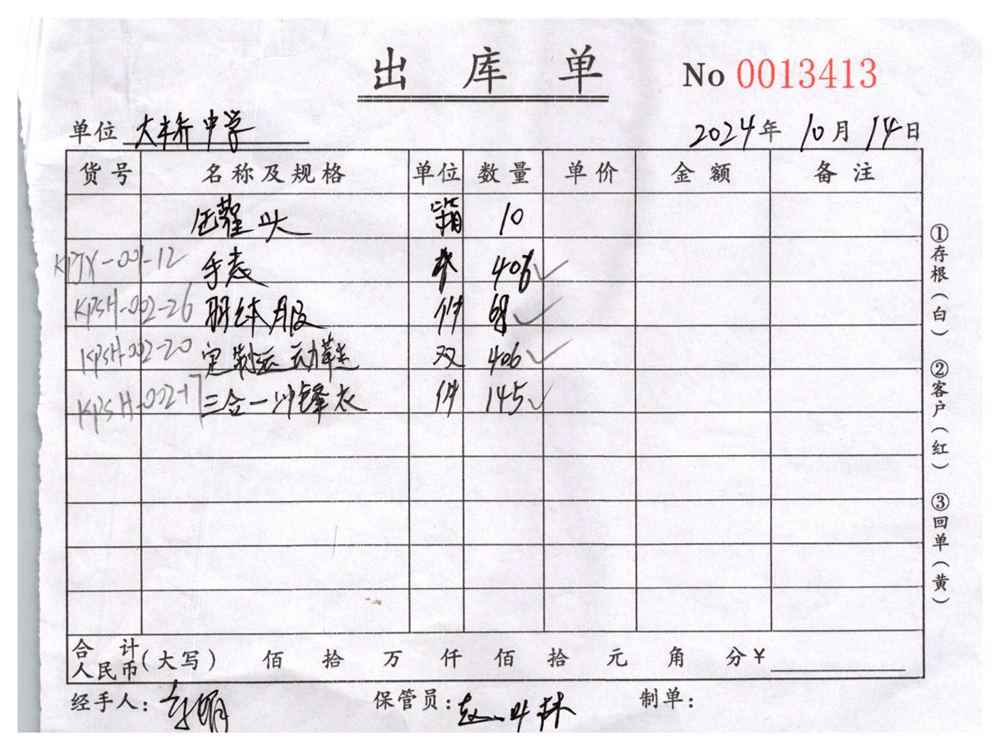 出库单 No 0013413
单位 大桥中学 2024年 10月 14日
货号 名称及规格 单位 数量 单价 金额 备注
箱 10
KPJY-001-12 手表 406
KPSH-002-26 服 件
KPSH-002-20 定制运动鞋 双 406
KPSH-002-17 三合一冲锋衣 件 145
合计人民币(大写) 佰 拾 万 仟 佰 拾 元 角 分 ¥
经手人: 保管员: 制单:
①存根(白) ②客户(红) ③回单(黄)